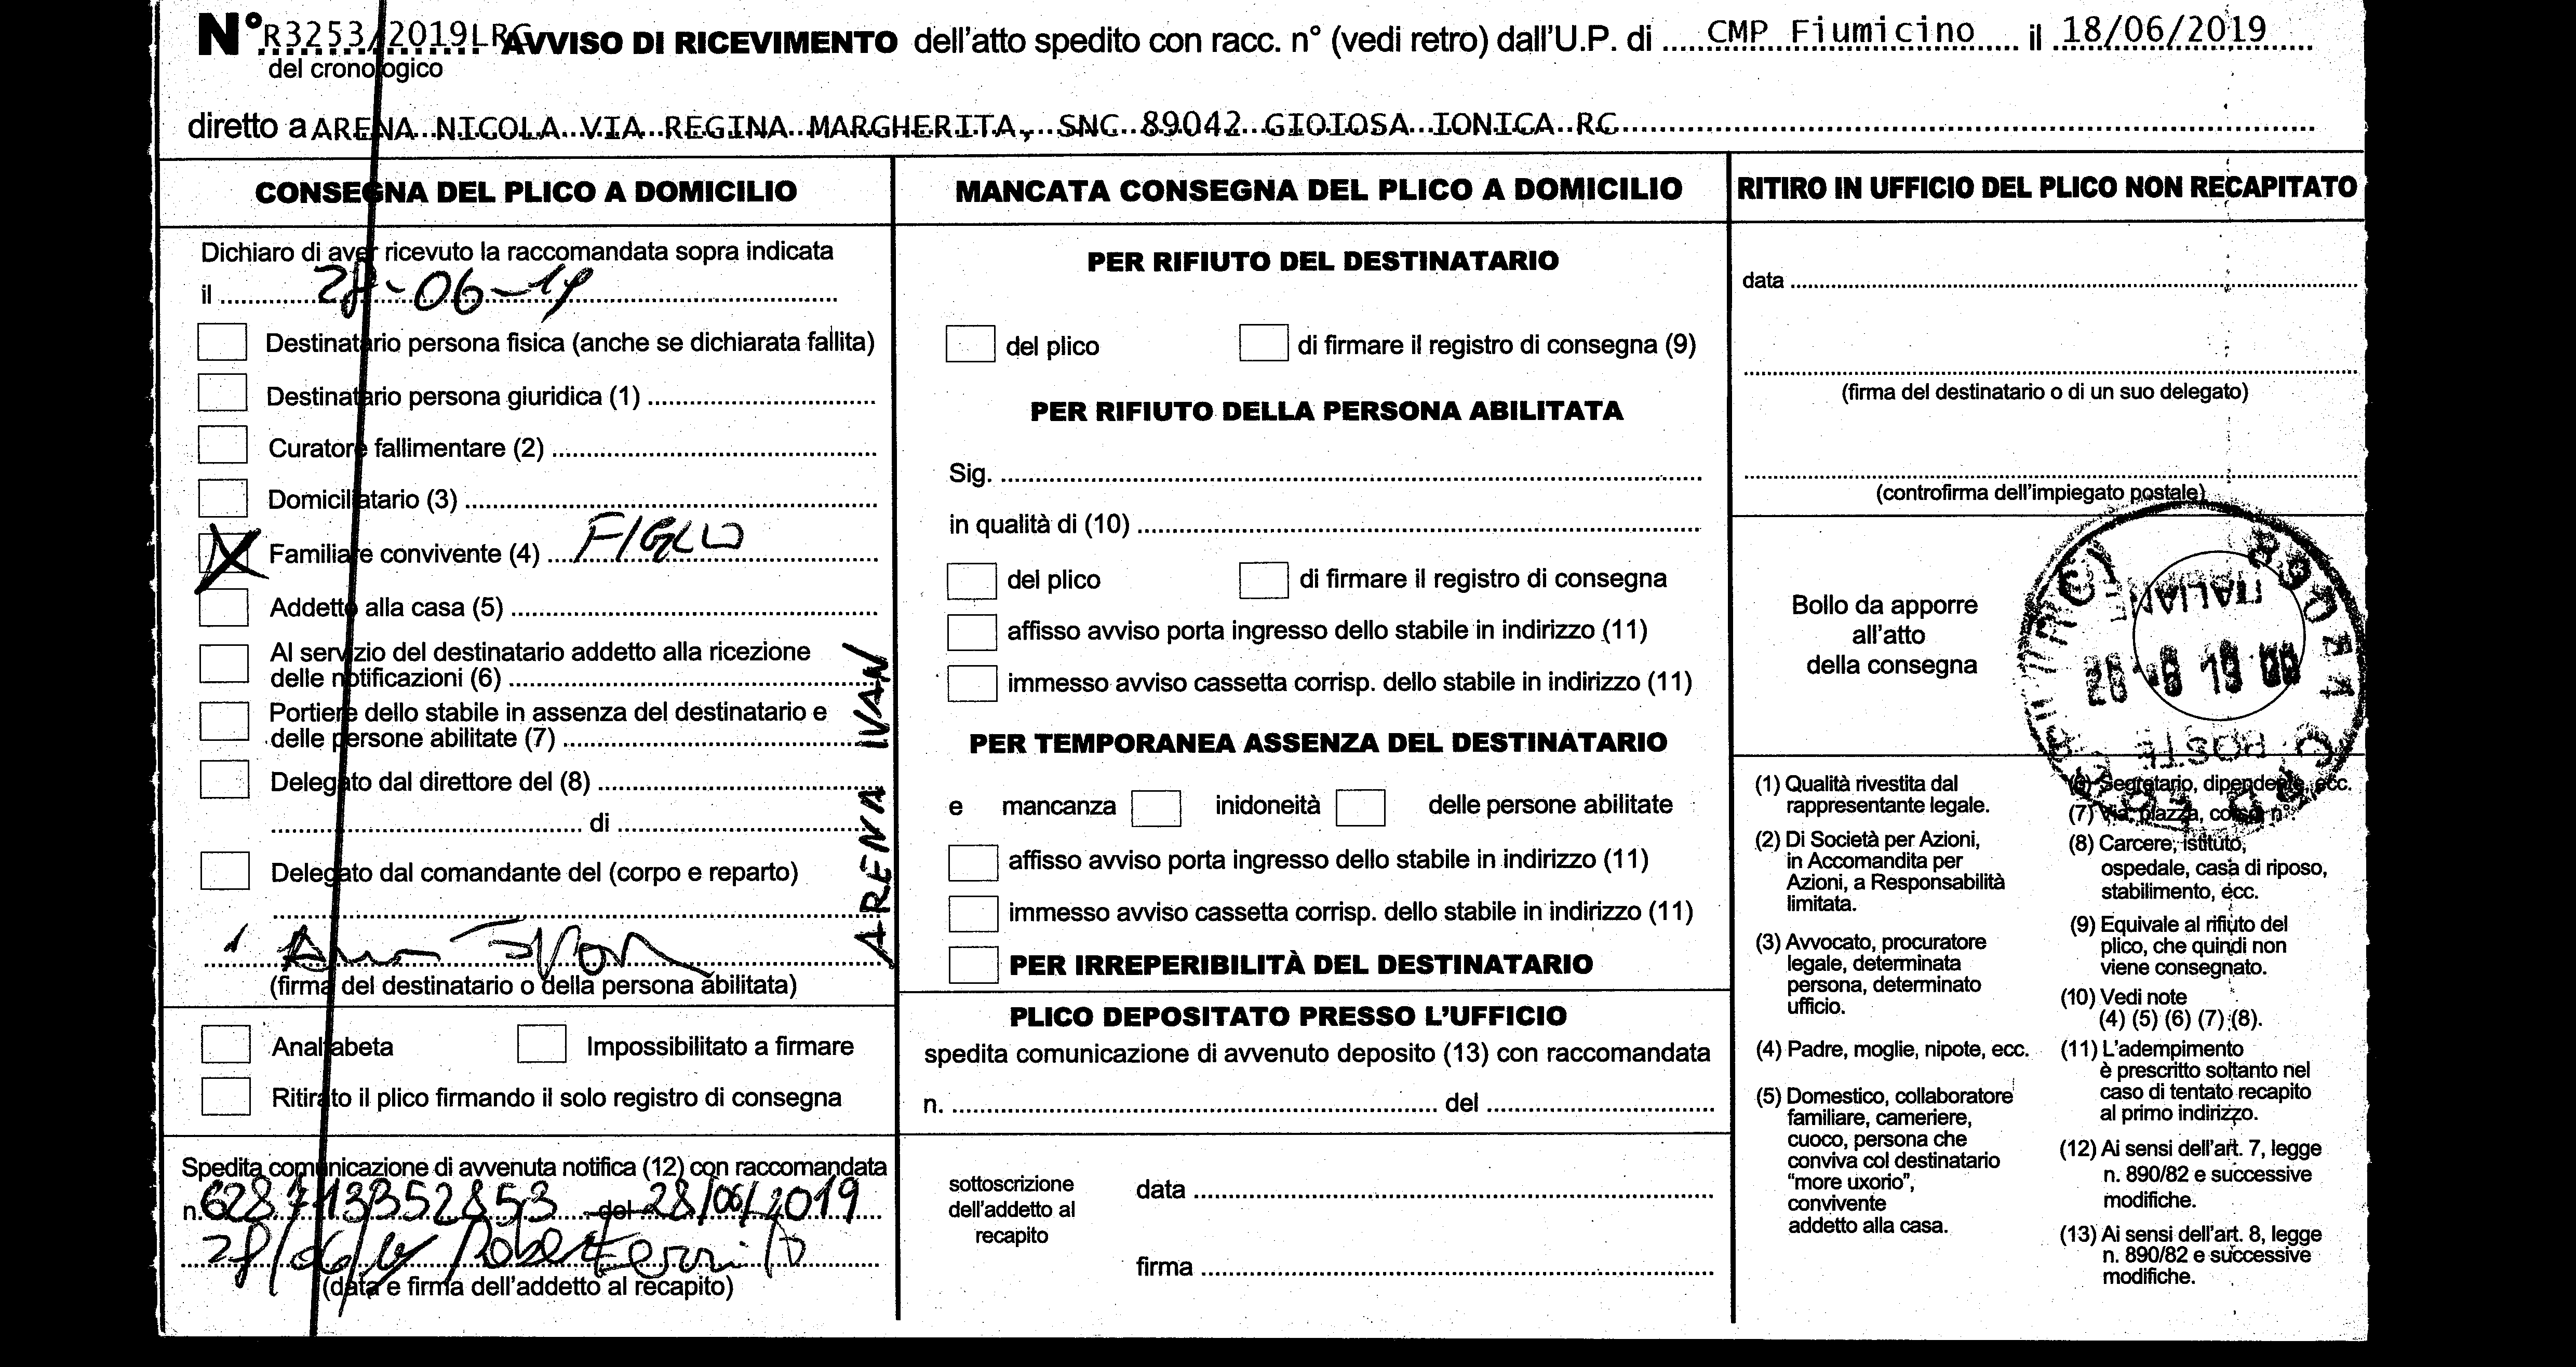 N° R3253/2019LRG AVVISO DI RICEVIMENTO dell'atto spedito con racc. n° (vedi retro) dall'U.P. di CMP Fiumicino il 18/06/2019
del cronologico
diretto a ARENA NICOLA VIA REGINA MARGHERITA, SNC 89042 GIOIOSA IONICA RC
CONSEGNA DEL PLICO A DOMICILIO
Dichiaro di aver ricevuto la raccomandata sopra indicata
il 28-06-19
Destinatario persona fisica (anche se dichiarata fallita)
Destinatario persona giuridica (1)
Curatore fallimentare (2)
Domiciliatario (3)
X Familiare convivente (4) FIGLIO
Addetto alla casa (5)
Al servizio del destinatario addetto alla ricezione
delle notificazioni (6)
Portiere dello stabile in assenza del destinatario e
delle persone abilitate (7)
Delegato dal direttore del (8)
di
Delegato dal comandante del (corpo e reparto)
ARENA IVAN
Arena Ivan
(firma del destinatario o della persona abilitata)
Analfabeta Impossibilitato a firmare
Ritirato il plico firmando il solo registro di consegna
Spedita comunicazione di avvenuta notifica (12) con raccomandata
n. 628713352853 del 28/06/2019
28/06/19
(data e firma dell'addetto al recapito)
MANCATA CONSEGNA DEL PLICO A DOMICILIO
PER RIFIUTO DEL DESTINATARIO
del plico di firmare il registro di consegna (9)
PER RIFIUTO DELLA PERSONA ABILITATA
Sig.
in qualità di (10)
del plico di firmare il registro di consegna
affisso avviso porta ingresso dello stabile in indirizzo (11)
immesso avviso cassetta corrisp. dello stabile in indirizzo (11)
PER TEMPORANEA ASSENZA DEL DESTINATARIO
e mancanza inidoneità delle persone abilitate
affisso avviso porta ingresso dello stabile in indirizzo (11)
immesso avviso cassetta corrisp. dello stabile in indirizzo (11)
PER IRREPERIBILITÀ DEL DESTINATARIO
PLICO DEPOSITATO PRESSO L'UFFICIO
spedita comunicazione di avvenuto deposito (13) con raccomandata
n. del
sottoscrizione
dell'addetto al
recapito
data
firma
RITIRO IN UFFICIO DEL PLICO NON RECAPITATO
data
(firma del destinatario o di un suo delegato)
(controfirma dell'impiegato postale)
Bollo da apporre
all'atto
della consegna
POSTE
ITALIANE
(1) Qualità rivestita dal
rappresentante legale.
(2) Di Società per Azioni,
in Accomandita per
Azioni, a Responsabilità
limitata.
(3) Avvocato, procuratore
legale, determinata
persona, determinato
ufficio.
(4) Padre, moglie, nipote, ecc.
(5) Domestico, collaboratore
familiare, cameriere,
cuoco, persona che
conviva col destinatario
"more uxorio",
convivente
addetto alla casa.
(6) Segretario, dipendente, ecc.
(7) Via, piazza, corso, n°.
(8) Carcere, istituto,
ospedale, casa di riposo,
stabilimento, ecc.
(9) Equivale al rifiuto del
plico, che quindi non
viene consegnato.
(10) Vedi note
(4) (5) (6) (7) (8).
(11) L'adempimento
è prescritto soltanto nel
caso di tentato recapito
al primo indirizzo.
(12) Ai sensi dell'art. 7, legge
n. 890/82 e successive
modifiche.
(13) Ai sensi dell'art. 8, legge
n. 890/82 e successive
modifiche.